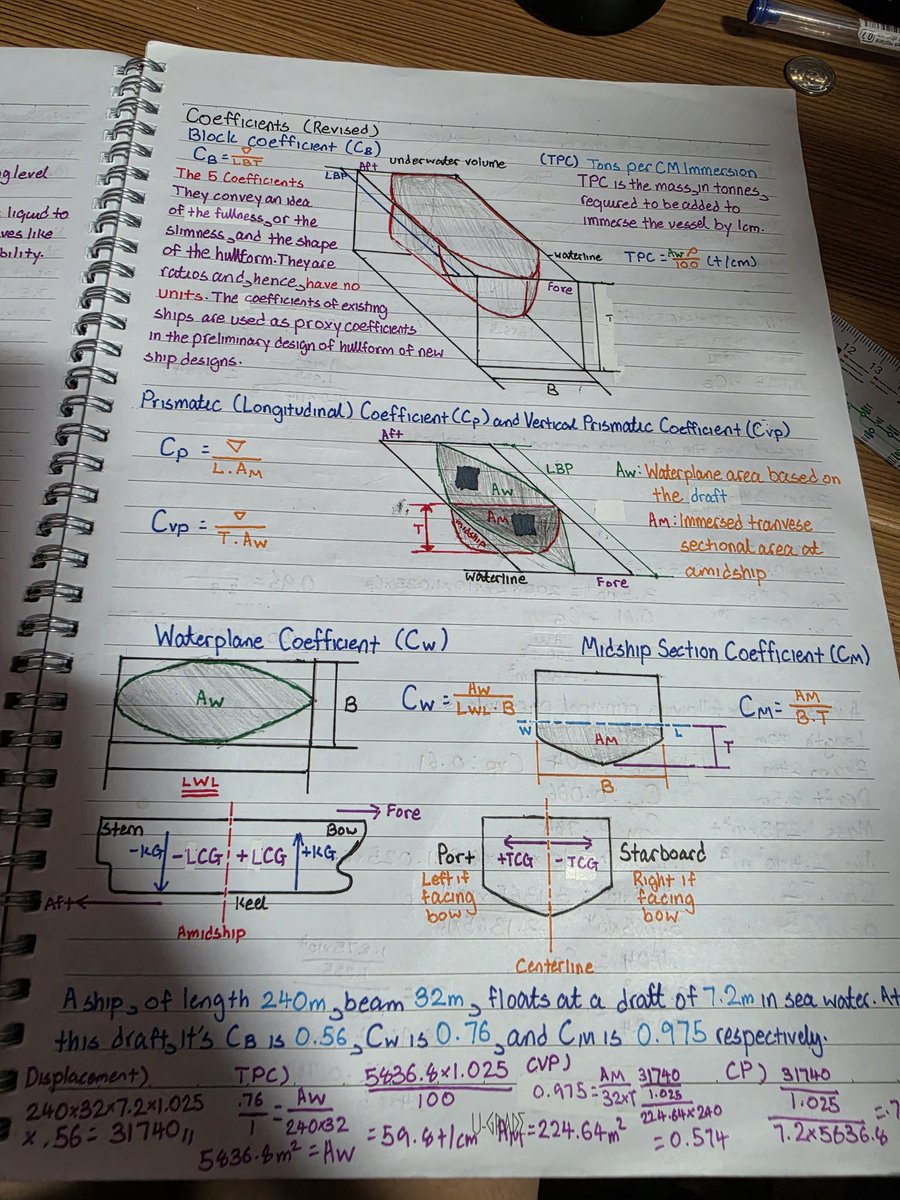 g level
liquid to
ves like
bility.
Coefficients (Revised)
Block coefficient (CB)
CB = ∇/LBT
The 5 Coefficients
They convey an idea
of the fullness, or the
slimness, and the shape
of the hullform. They are
ratios and, hence, have no
units. The coefficients of existing
ships are used as proxy coefficients
in the preliminary design of hullform of new
ship designs.
Aft
underwater volume
LBP
waterline
Fore
T
B
(TPC) Tons per CM Immersion
TPC is the mass, in tonnes,
required to be added to
immerse the vessel by 1cm.
TPC = Aw ρ/100 (t/cm)
12
13
Prismatic (Longitudinal) Coefficient (Cp) and Vertical Prismatic Coefficient (Cvp)
Cp = ∇/L.AM
Cvp = ∇/T.Aw
Aft
LBP
Aw
AM
T
midship
waterline
Fore
Aw: Waterplane area based on
the draft
Am: Immersed tranvese
sectional area at
amidship
Waterplane Coefficient (Cw)
Aw
B
LWL
Cw = Aw/LWL.B
Midship Section Coefficient (CM)
W
L
AM
T
B
CM = AM/B.T
Fore
Stem
Bow
-KG
-LCG
+LCG
+KG
Aft
Keel
Amidship
Port
+TCG
-TCG
Starboard
Left if
facing
bow
Right if
facing
bow
Centerline
A ship, of length 240m, beam 32m, floats at a draft of 7.2m in sea water. At
this draft, it's CB is 0.56, Cw is 0.76, and CM is 0.975 respectively.
Displacement)
240x32x7.2x1.025
x .56 = 31740
TPC)
.76/1 = Aw/240x32
5836.8m² = Aw
5836.8x1.025/100
= 59.8t/cm
CVP)
0.975 = AM/32xT
AM = 224.64m²
31740/1.025
224.64x240
= 0.574
CP)
31740/1.025
7.2x5636.8
= .7